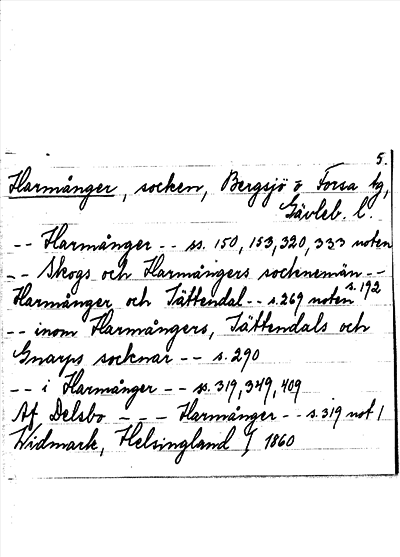 5.
Harmånger, socken, Bergsjö o Forsa tg,
Gävleb. l.
-- Harmånger -- ss. 150, 153, 320, 333 noten
-- Skogs och Harmångers socknemän --
s. 192
Harmånger och Jättendal -- s. 269 noten
-- inom Harmångers, Jättendals och
Gnarps socknar -- s. 290
-- i Harmånger -- ss. 319, 349, 409
Af Delsbo --- Harmånger -- s. 319 not 1
Widmark, Helsingland I 1860